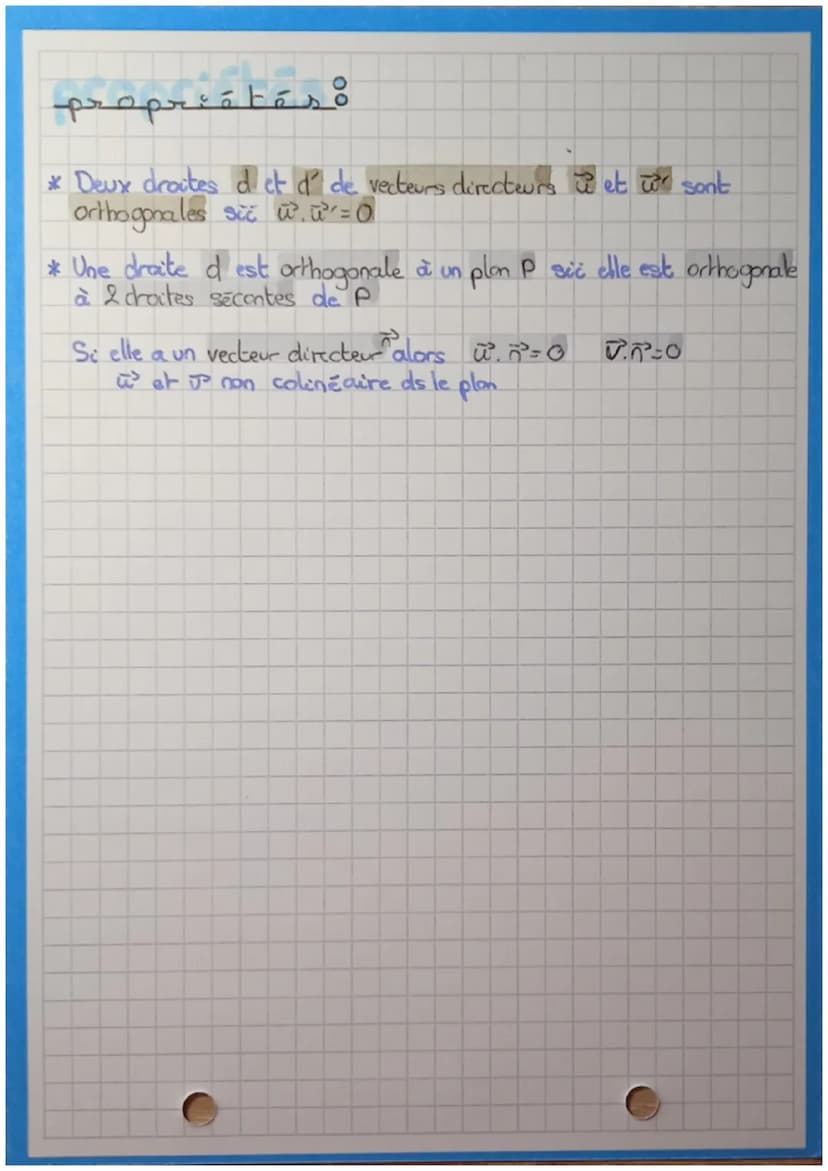 propriétés :
* Deux droites d et d' de vecteurs directeurs u⃗ et u⃗' sont
orthogonales sii u⃗.u⃗'=0
* Une droite d est orthogonale à un plan P sii elle est orthogonale
à 2 droites sécantes de P
Si elle a un vecteur directeur n⃗ alors u⃗.n⃗=0 v⃗.n⃗=0
u⃗ et v⃗ non colinéaire ds le plan